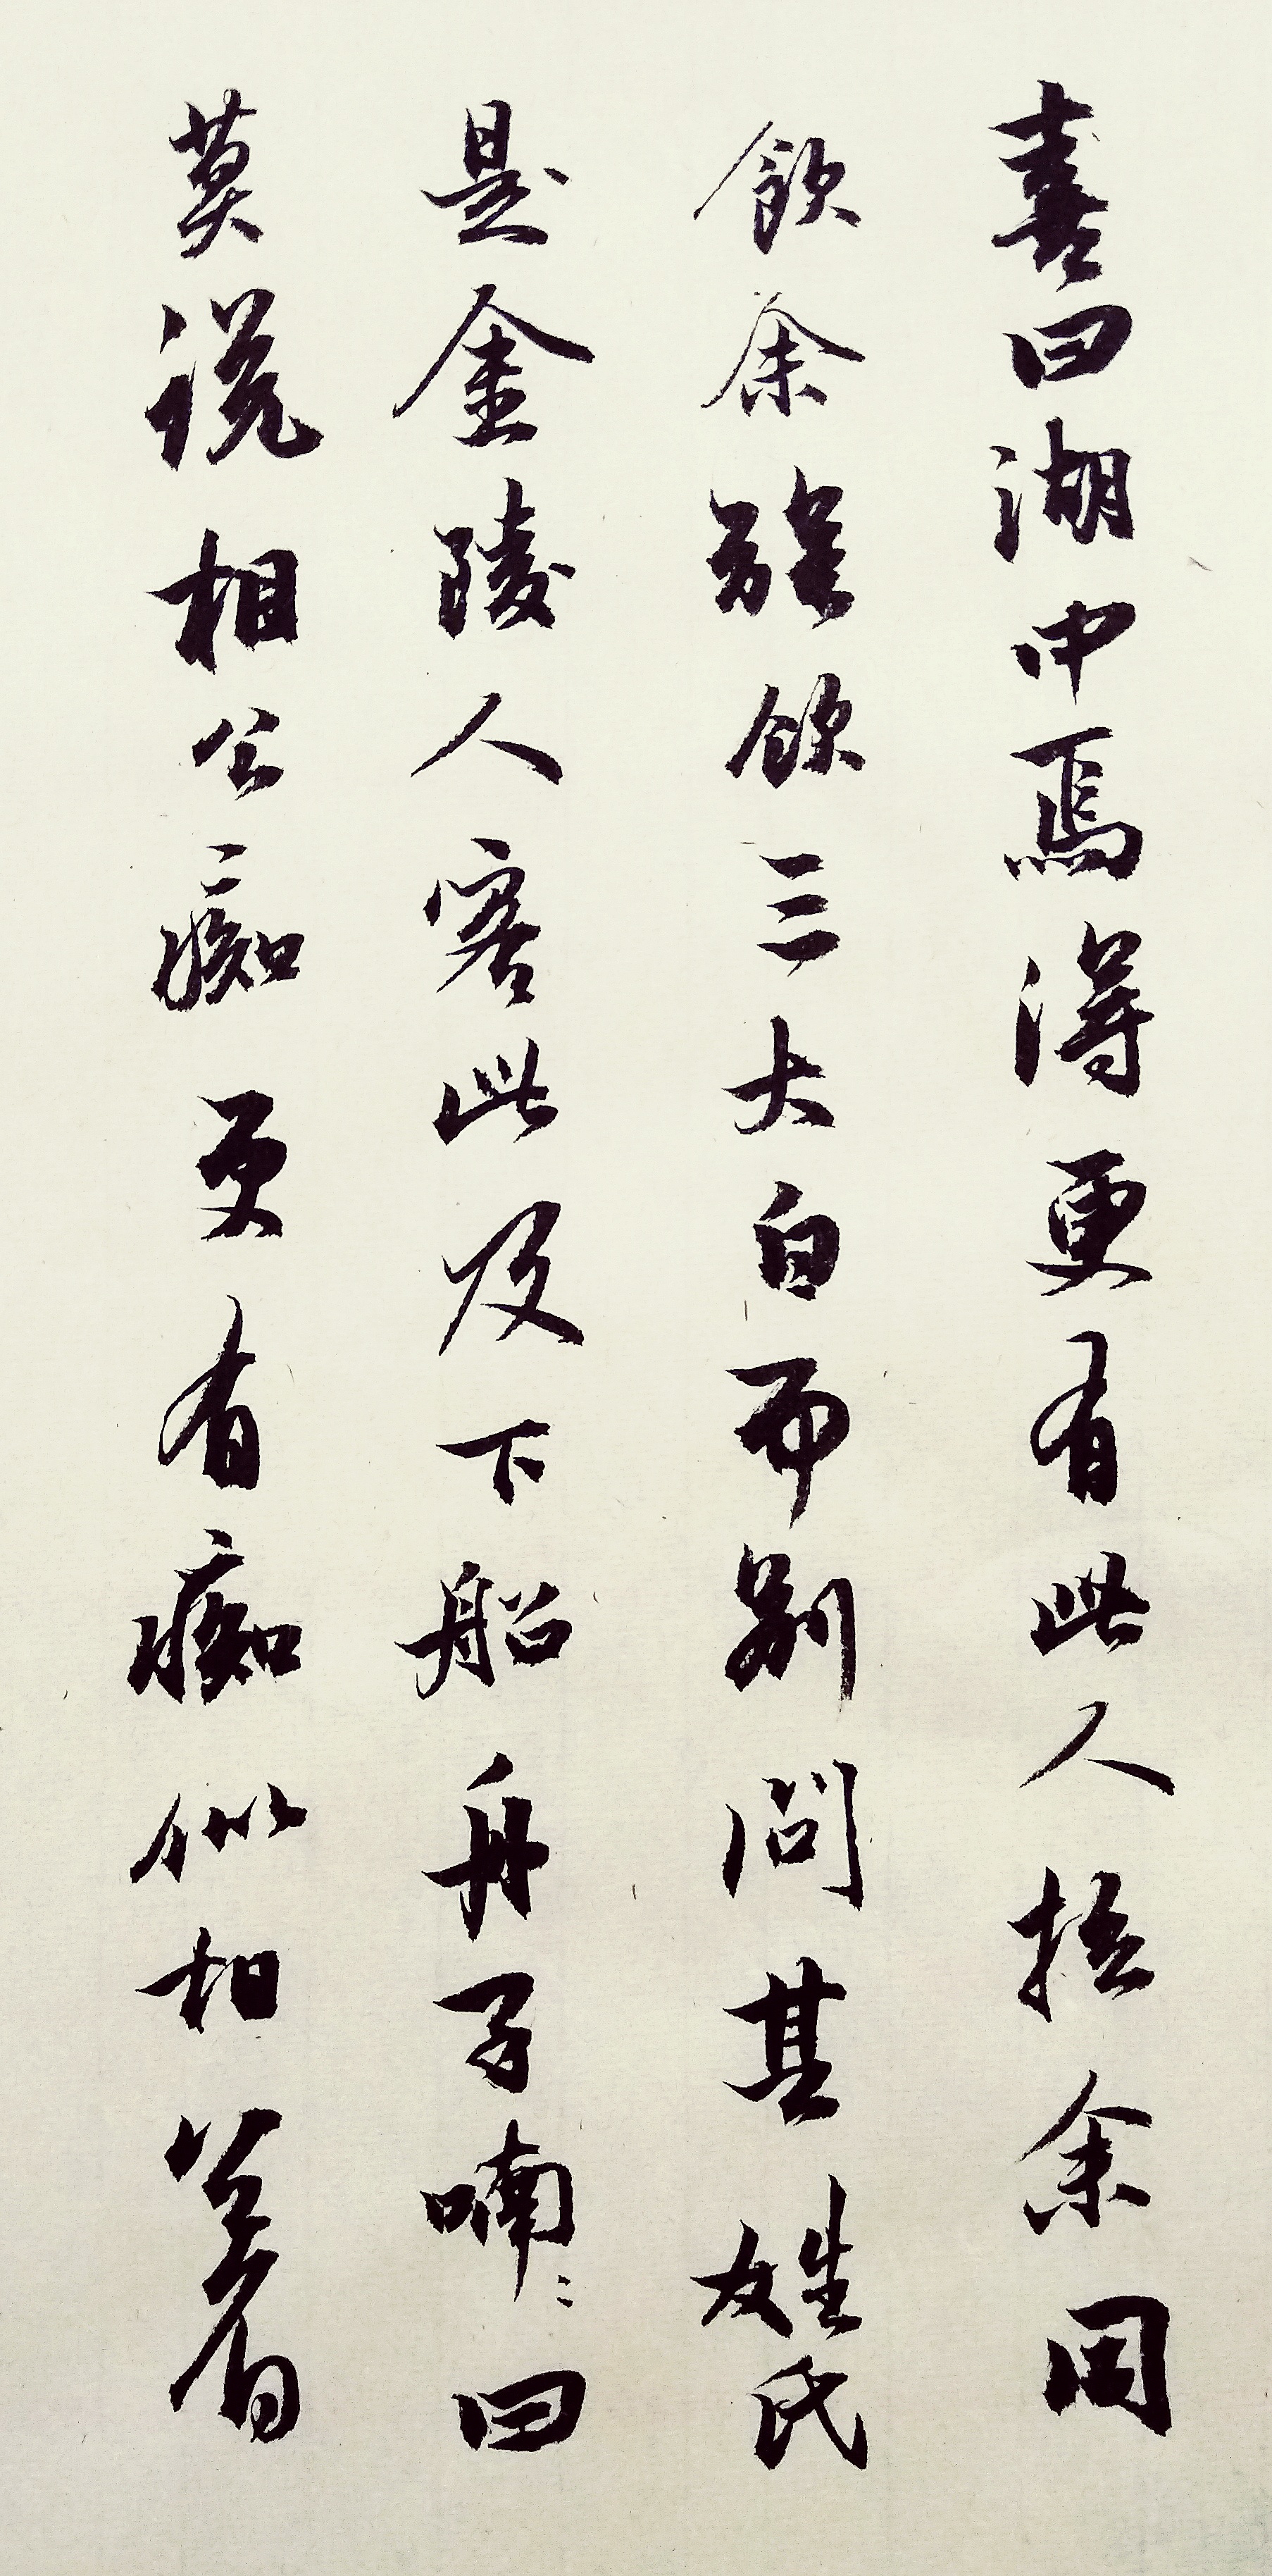 喜曰湖中焉得更有此人拉余同
飲余强飲三大白而别問其姓氏
是金陵人客此及下船舟子喃〻曰
莫説相公痴更有痴似相公者